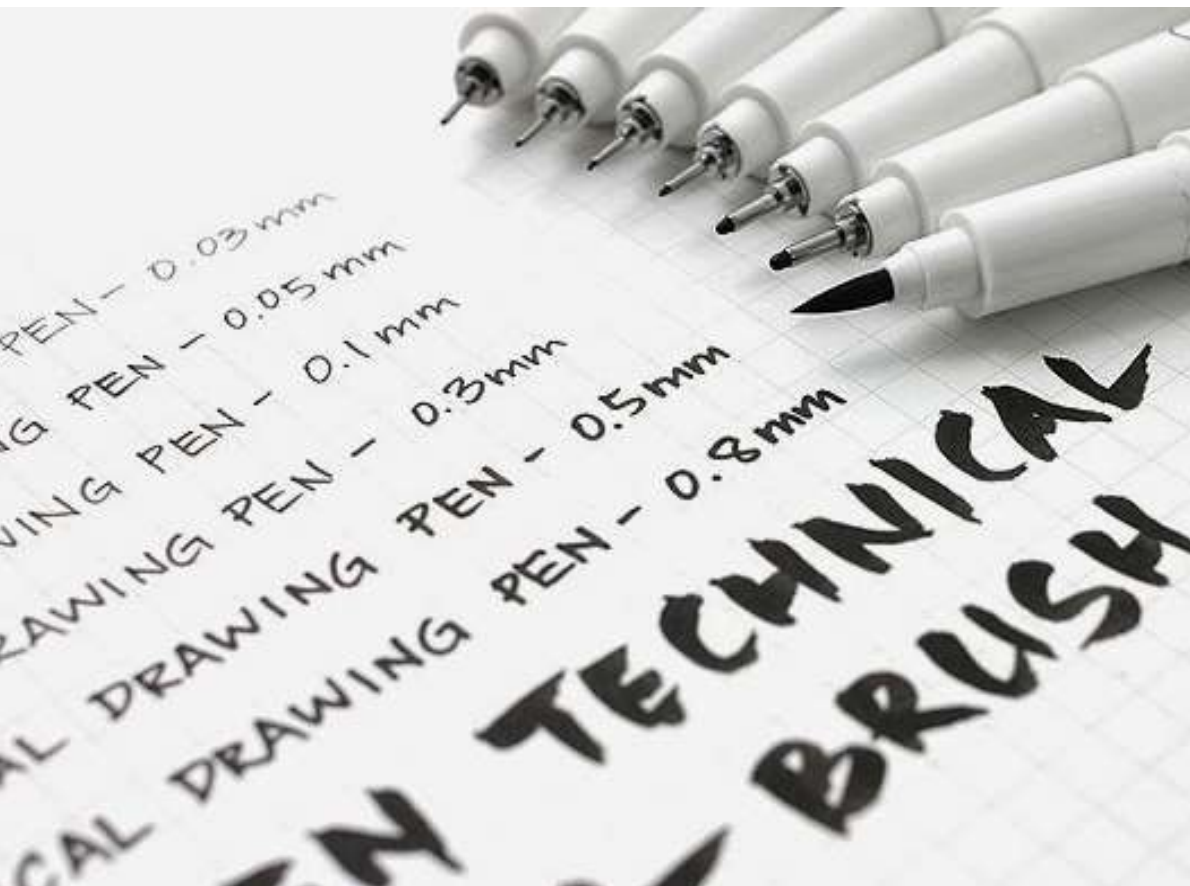 PEN - 0.03mm
PEN - 0.05mm
WING PEN - 0.1mm
RAWING PEN - 0.3mm
AL DRAWING PEN - 0.5mm
CAL DRAWING PEN - 0.8mm
TECHNICAL
EN - BRUSH